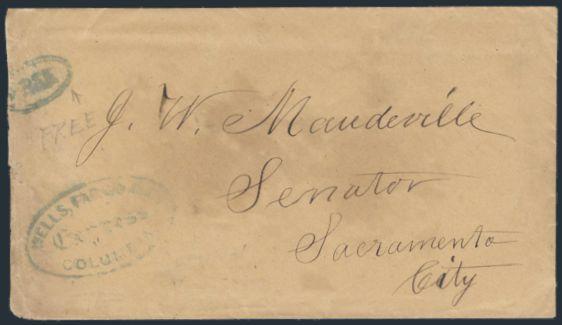 FREE
J. W. Mandeville
Senator
Sacramento
City
WELLS, FARGO
Express